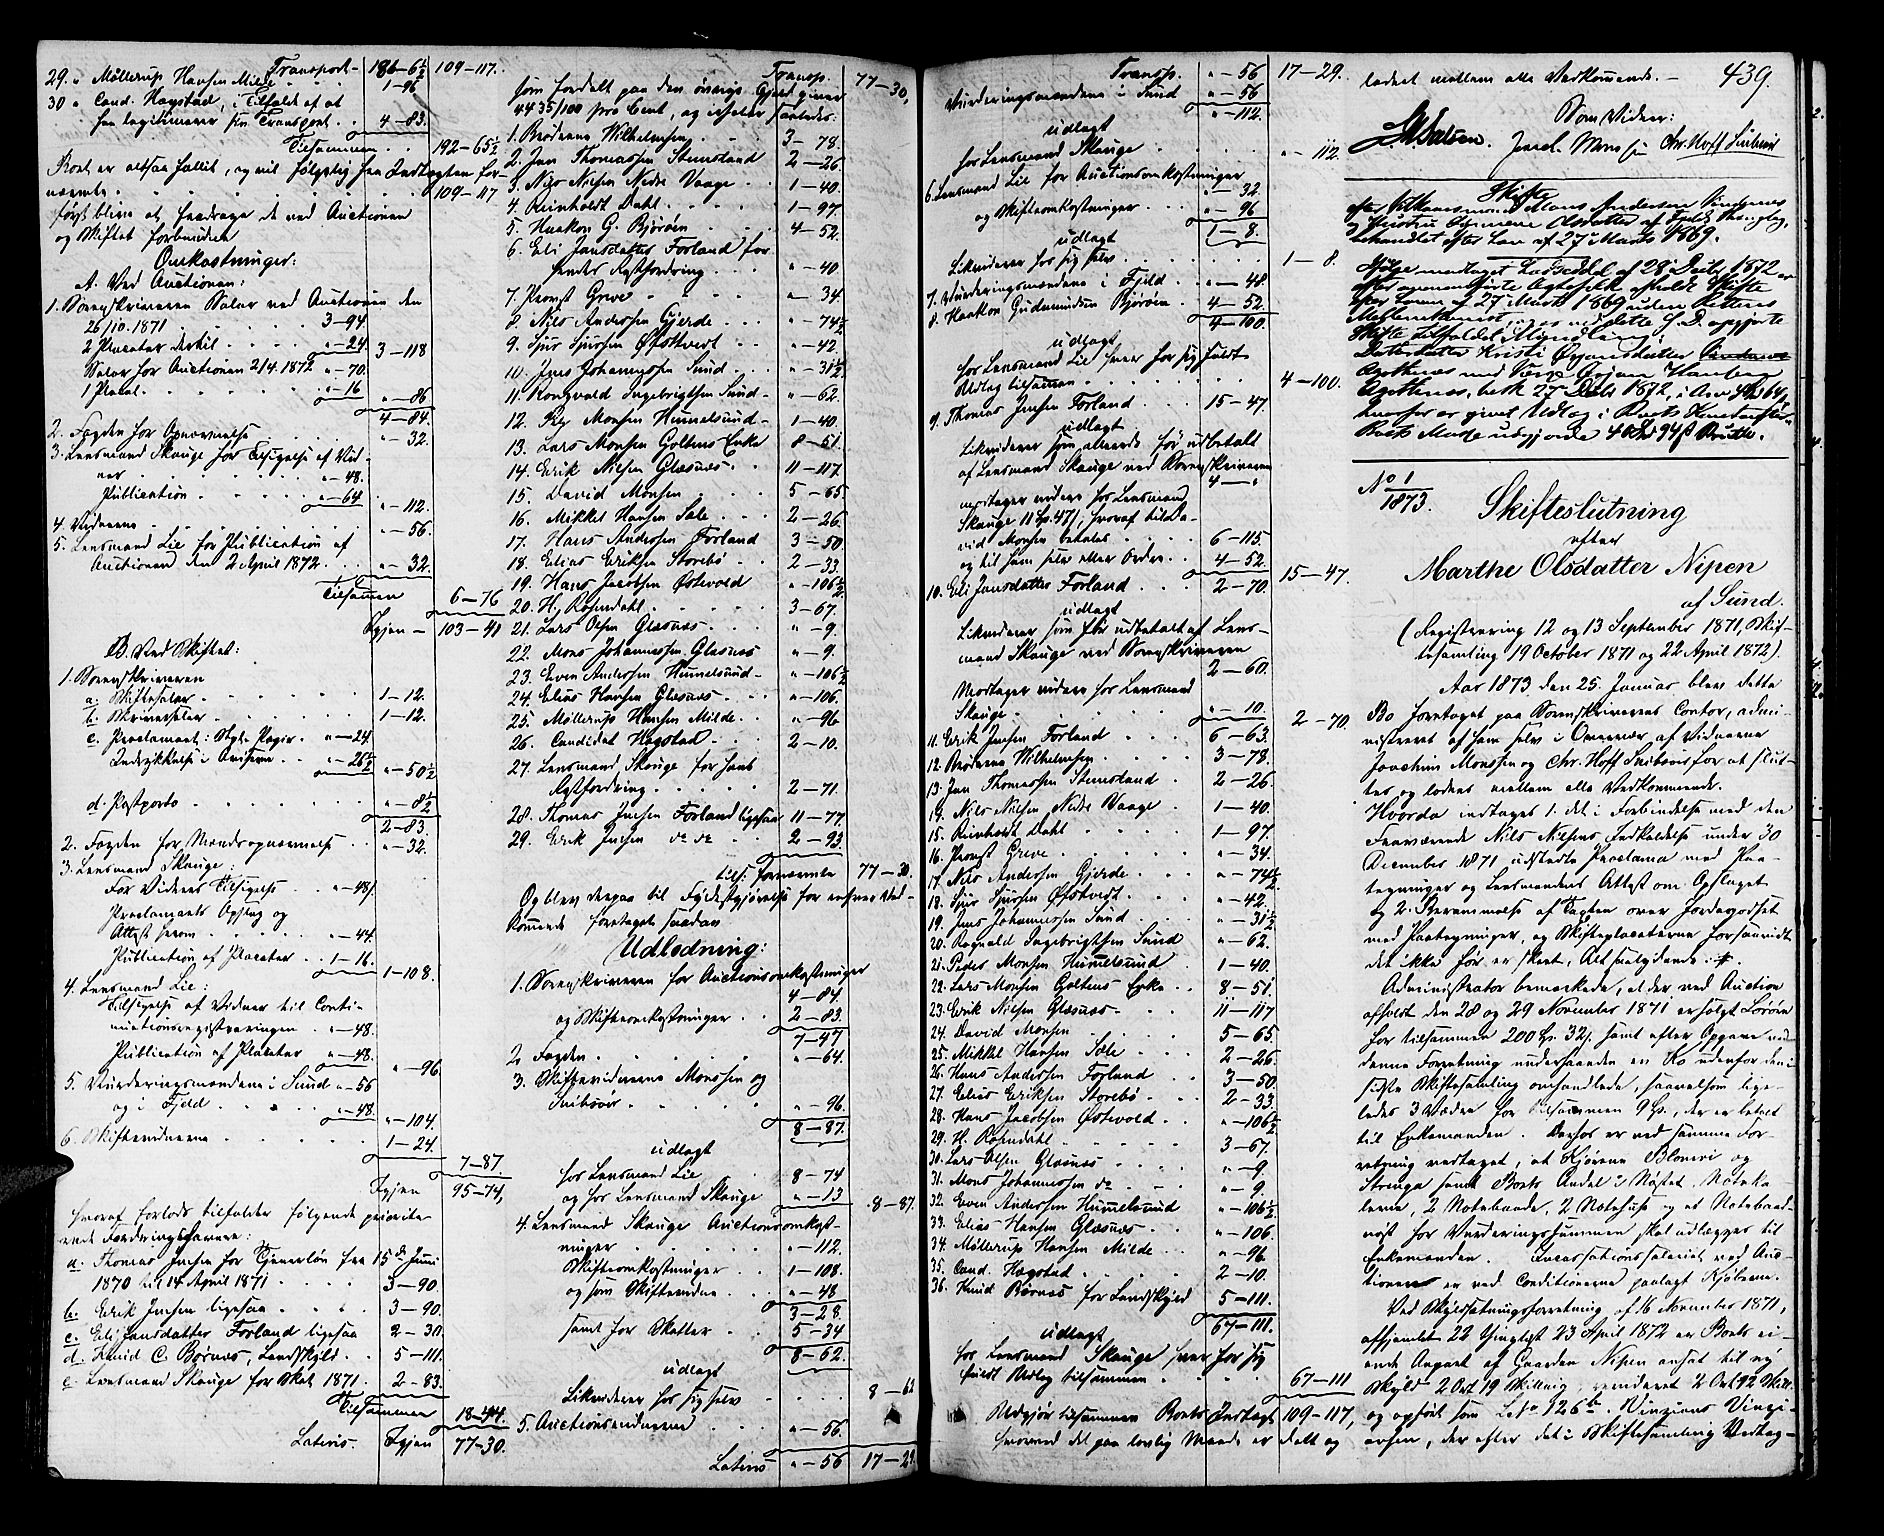 Transport 186–6½ 109–117.
29. " Møllerup Hansen Milde 1–96
30 " Cand. Hagstad, i Tilfælde af at
han legitimerer sin Transport. 4–83.
Tilsammen 192–65½
Boet er altsaa fallit, og vil følgelig fra Indtægten for-
nævnte 109–117
først blive at fradrage de ved Auctionen
og Skiftet forbundne
Omkostninger:
A. Ved Auctionen:
1. Sorenskriveren Salær ved Auctionen den
26/10. 1871 3–94.
2 Placater dertil "–24. 3–118
Salær for Auctionen 2/4. 1872 "–70.
1 Placat "–16 "–86
4–84.
2. Fogden for Opnævnelse "–32.
3. Lensmand Skauge for Tilsigelse af Vid-
ner "–48.
Publication "–64. "–112.
4. Vidnerne "–56.
5. Lensmand Lie for Publication af
Auctionen den 2 April 1872. "–32.
Tilsammen 6–76
Igjen – 103–41
B. Ved Skiftet:
1. Sorenskriveren
a. Skiftesalær 1–12.
b. Skriversalær 1–12.
c. Proclamaet: Stpl. Papir "–24
Indrykkelse i Aviserne "–26½ "–50½
d. Postporto "–8½
2–83.
2. Fogden for Mændsopnævnelse "–32.
3. Lensmand Skauge:
For Vidners Tilsigelse "–48.
Proclamaets Opslag og
Attest herom "–44.
Publication af Placater 1–16. 1–108.
4. Lensmand Lie:
Tilsigelse af Vidner til Conti-
nuationsregistreringen "–48.
Publication af Placater "–48. "–96.
5. Vurderingsmændene i Sund "–56
og i Fjeld "–48. "–104.
6. Skiftevidnerne 1–24.
7–87.
Igjen 95–74,
hvoraf forlods tilfalder følgende priorite-
rede Fordringshavere:
a. Thomas Jensen for Tjenerløn fra 15de Juni
1870 til 14 April 1871 3–90.
b. Erik Jensen ligesaa 3–90.
c. Eli Jansdatter Forland ligesaa 2–30.
d. Knud C. Børnes, Landskyld 5–111.
e. Lensmand Skauge for Skat 1871. 2–83.
Tilsammen 18–44.
Lateris. Igjen 77–30.
Transp. 77–30,
som fordelt paa den øvrige Gjeld giver
44 35/100 pro Cent, og isfaler saaledes:
1. Brødrene Wilhelmsen 3–78.
2. Jan Thomassen Stensland 2–26
3. Nils Nilsen Nedre Vaage 1–40.
4. Reinholdt Dahl 1–97
5. Haakon G. Bjørøen 4–52.
6. Eli Jansdatter Forland for
hendes Restfordring "–40
7. Provst Greve "–34.
8. Nils Andersen Gjerde "–74½
9. Sjur Sjursen Østtvedt "–42.
10. Jens Johannessen Sund "–31½
11. Rongvald Ingebrigtsen Sund "–62.
12. Peder Monsen Hummelsund 1–40.
13. Lars Monsen Goltens Enke 8–51.
14. Erik Nilsen Glæsnæs 11–117.
15. David Monsen 5–65.
16. Mikkel Hansen Sæle 2–26
17. Hans Andersen Forland 3–50
18. Elias Eriksen Storebø 2–33.
19. Hans Jacobsen Østvold "–106½
20. H. Rosendahl 3–67.
21. Lars Olsen Glæsnæs "–9.
22. Mons Johannessen Glæsnæs "–9.
23. Even Andersen Hummelsund "–106½
24. Elias Hansen Glæsnæs "–106.
25. Møllerup Hansen Milde "–96
26. Candidat Hagstad 2–10.
27. Lensmand Skauge for hans
Restfordring 2–71.
28. Thomas Jensen Forland ligesaa 11–77.
29. Erik Jensen do do 2–93
tils. fornævnte 77–30.
Og blev derpaa til Fyldestgjørelse for enhver Ved-
kommende foretaget saadan
Udlodning:
1. Sorenskriveren for Auctionsomkostninger
4–84.
og Skifteomkostninger 2–83
7–47
2. Fogden "–64.
3. Skiftevidnerne Monssen og
Suibsøir "–96.
8–87.
udlagt
hos Lensmand Lie 8–74
og hos Lensmand Skauge "–13 8–87.
4. Lensmand Skauge Auctionsomkost-
ninger "–112.
Skifteomkostninger 1–108.
og som Skiftevidne "–48
3–28
samt for Skatter 5–34
8–62.
udlagt
Likviderer hos sig selv 8–62
5. Auctionsvidnerne "–56.
Lateris "–56 17–29.
Transp. "–56 17–29.
Vurderingsmændene i Sund "–56
"–112.
udlagt
hos Lensmand Skauge "–112.
6. Lensmand Lie for Auctionsomkostninger
"–32.
og Skifteomkostninger "–96.
1–8.
udlagt
Likviderer hos sig selv 1–8.
7. Vurderingsmændene i Fjeld "–48.
8. Haakon Gudmundsen Bjørøen 4–52.
4–100.
udlagt
hos Lensmand Lie hver for sig fuldt
Udlæg tilsammen 4–100.
9. Thomas Jensen Forland 15–47.
udlagt
Likviderer som allerede før udbetalt
af Lensmand Skauge ved Sorenskriveren
4–"
modtager videre hos Lensmand
Skauge 11 Sp. 47 s, hvoraf til Da-
vid Monsen betales 6–115
og til ham selv eller Ordre 4–52. 15–47.
10. Eli Jansdatter Forland 2–70.
udlagt
Likviderer som før udbetalt af Lens-
mand Skauge ved Sorenskriveren
2–60.
Modtager videre hos Lensmand
Skauge "–10. 2–70.
11. Erik Jensen Forland 6–63.
12. Brødrene Wilhelmsen 3–78.
13. Jan Thomassen Stensland 2–26
14. Nils Nilsen Nedre Vaage 1–40.
15. Reinholdt Dahl 1–97.
16. Provst Greve "–34.
17. Nils Andersen Gjerde "–74½
18. Sjur Sjursen Østtvedt "–42.
19. Jens Johannesen Sund "–31½
20. Rognald Ingebrigtsen Sund "–62.
21. Peder Monsen Hummelsund 1–40.
22. Lars Monsen Goltens Enke 8–51.
23. Erik Nilsen Glæsnæs 11–117
24. David Monsen 5–65.
25. Mikkel Hansen Sæle 2–26
26. Hans Andersen Forland 3–50
27. Elias Eriksen Storebø 2–33.
28. Hans Jacobsen Østvold "–106½
29. H. Rosendahl 3–67.
30. Lars Olsen Glæsnæs "–9
31. Mons Johannessen do "–9.
32. Even Andersen Hummelsund "–106½
33. Elias Hansen Glæsnæs "–106.
34. Møllerup Hansen Milde "–96
35. Cand. Hagstad 2–10.
36. Knud Børnes for Landskyld 5–111.
67–111.
udlagt
hos Lensmand Skauge hver for sig
fuldt Udlæg tilsammen 67–111
Udgjør tilsammen Boets Indtægt 109–117,
hvorved det paa lovlig Maade er delt og
439.
loddet mellem alle Vedkommende. –
Som Vidner:
Joach. Monssen Chr. Hoff
Skifte
efter Selveiermand Mons Andersen
og Hustru Olsdatter af Fjeld Thinglag,
behandlet efter Lov af 27 Marts 1869.
Ifølge modtaget Lodseddel af 28 Decbr. 1872 er
efter ovenanførte Ægtefolk afholdt Skifte
efter Loven af 27 Marts 1869 uden Rettens
Mellemkomst
Skifte tilfaldet Myndling,
Datterdatter Kristi Ørjansdatter
Agotnæs ved Værge Ørjan Hansen
Agotnæs, bek. 27 Decbr 1872, i Arv
hvorfor er givet Udlæg i Boets
Boets Masse udgjorde 94 s Brutto.
No 1/1873.
Skifteslutning
efter
Marthe Olsdatter Nipen
af Sund.
(Registrering 12 og 13 September 1871, Skif-
tesamling 19 October 1871 og 22 April 1872).
Aar 1873 den 25. Januar blev dette
Bo foretaget paa Sorenskriverens Contor, admi-
nistreret af ham selv i Overvær af Vidnerne
Joachim Monssen og Chr. Hoff Suibsøir for at slut-
tes og loddes mellem alle Vedkommende.
Hvorda indtages 1. det i Forbindelse med den
Fraværende Nils Nilsens Indkaldelse under 30
December 1871 udstedte Proclama med Paa-
tegninger og Lensmandens Attest om Opslaget
og 2. Berammelse af Tægten over Jordegodset
med Paategninger, og Skifteplacaterne forsaavidt
det ikke før er skeet, Alt saalydende: #.
Administrator bemærkede, at der ved Auction
afholdt den 28 og 29 November 1871 er solgt Løsøre
for tilsammen 200 Sp. 32 s. samt efter Opgave ved
denne Forretning underhaanden en Ko udenfor den i
sidste Skiftesamling omhandlede, saavelsom lige-
ledes 3 Væder for tilsammen 9 Sp., der er betalt
til Enkemanden. Derhos er ved samme For-
retning vedtaget, at Kjørene Blomroi og
Stringa samt Boets Andel i Nøstet, Notkæ-
lerne, 2 Notebaade, 2 Notehuse og et Notebaad-
nøst for Vurderingssummen skal udlægges til
Enkemanden. Incassationssalæriet ved Auc-
tionen er ved Conditionerne paalagt Kjøberne.
Ved Skyldsætningsforretning af 16 November 1871,
afhjemlet 22 Thinglyst 23 April 1872 er Boets ei-
ende Anpart af Gaarden Nipen ansat til ny
Skyld 2 Ort 19 Skilling, revideret 2 Ort 92 Skill.
og opført som Løbe No 126b. Nipen
, der efter det i Skiftesamling Vedtag-